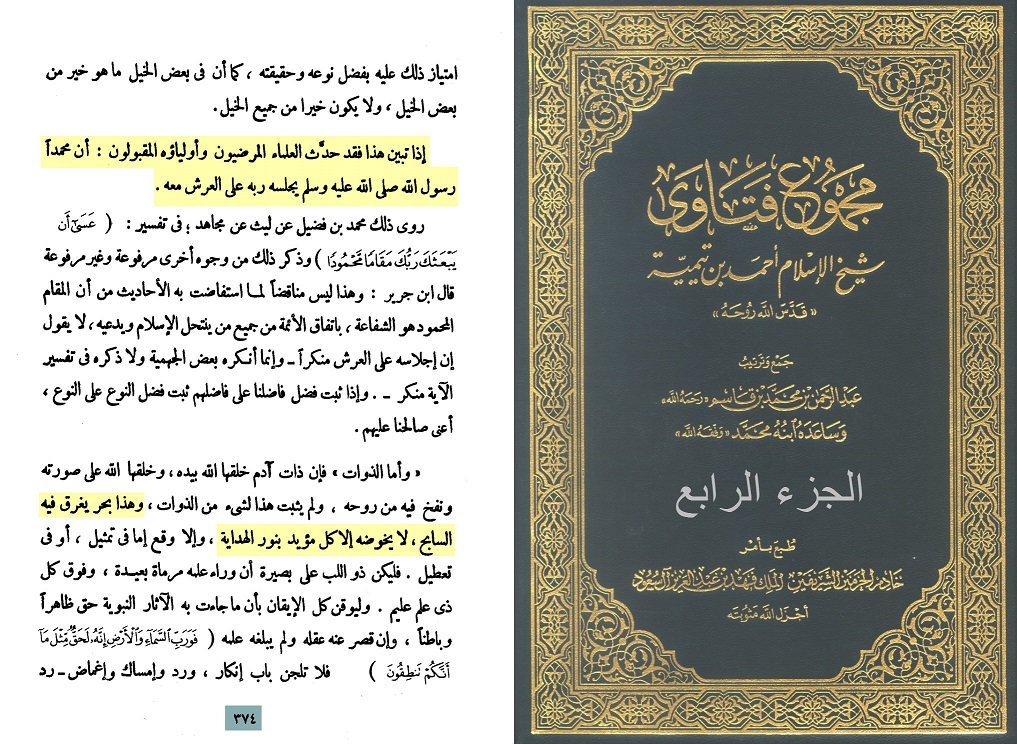 امتياز ذلك عليه بفضل نوعه وحقيقته ، كما أن فى بعض الخيل ما هو خير من
بعض الخيل ، ولا يكون خيرا من جميع الخيل .
إذا تبين هذا فقد حدَّث العلماء المرضيون وأولياؤه المقبولون : أن محمداً
رسول الله صلى الله عليه وسلم يجلسه ربه على العرش معه .
روى ذلك محمد بن فضيل عن ليث عن مجاهد ؛ فى تفسير : ( عَسَىٰٓ أَن
يَبْعَثَكَ رَبُّكَ مَقَامًا مَّحْمُودًا ) وذكر ذلك من وجوه أخرى مرفوعة وغير مرفوعة
قال ابن جرير : وهذا ليس مناقضاً لما استفاضت به الأحاديث من أن المقام
المحمود هو الشفاعة ، باتفاق الأئمة من جميع من ينتحل الإسلام ويدعيه ، لا يقول
إن إجلاسه على العرش منكراً ـ وإنما أنكره بعض الجهمية ولا ذكره فى تفسير
الآية منكر ـ . وإذا ثبت فضل فاضلنا على فاضلهم ثبت فضل النوع على النوع ،
أعنى صالحنا عليهم .
« وأما الذوات » فإن ذات آدم خلقها الله بيده ، وخلقها الله على صورته
ونفخ فيه من روحه ، ولم يثبت هذا لشىء من الذوات ، وهذا بحر يغرق فيه
السابح ، لا يخوضه إلا كل مؤيد بنور الهداية ، وإلا وقع إما فى تمثيل ، أو فى
تعطيل . فليكن ذو اللب على بصيرة أن وراء علمه مرماة بعيدة ، وفوق كل
ذى علم عليم . وليوقن كل الإيقان بأن ما جاءت به الآثار النبوية حق ظاهراً
وباطناً ، وإن قصر عنه عقله ولم يبلغه علمه ( فَوَرَبِّ ٱلسَّمَآءِ وَٱلْأَرْضِ إِنَّهُۥ لَحَقٌّ مِّثْلَ مَآ
أَنَّكُمْ تَنطِقُونَ ) فلا تلجن باب إنكار ، ورد وإمساك وإغماض ـ رد
٣٧٤
مجموع فتاوى
شيخ الإسلام أحمد بن تيمية
« قدَّس الله روحه »
جمع وترتيب
عبد الرحمن بن محمد بن قاسم «رحمه الله»
وساعده ابنه محمد «وفقه الله»
الجزء الرابع
طبع بأمر
خادم الحرمين الشريفين الملك فهد بن عبد العزيز آل سعود
أجزل الله مثوبته